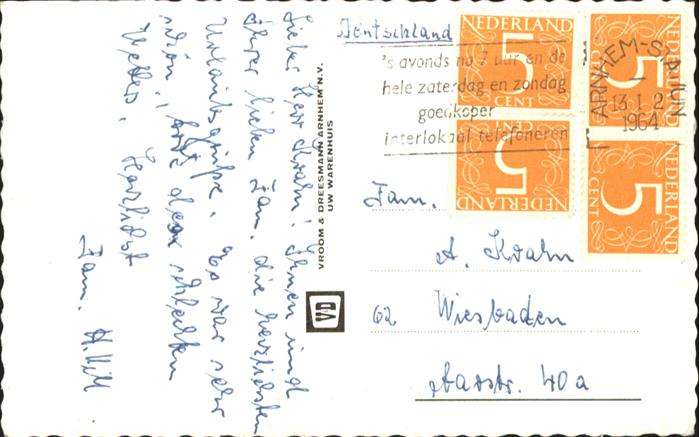 Lieber Herr Krahn! Ihnen und
Ihrer lieben Fam. die herzlichsten
Urlaubsgrüße. Es war sehr
schön! trotz des schlechten
Wetters. Herzlichst
Fam. H.
VROOM & DREESMANN ARNHEM N.V.
UW WARENHUIS
V&D
Deutschland
's avonds na 7 uur en de
hele zaterdag en zondag
goedkoper
interlokaal telefoneren
ARNHEM-STATION
13.I.2
1964
NEDERLAND
5
CENT
NEDERLAND
5
CENT
NEDERLAND
5
CENT
NEDERLAND
5
CENT
Fam.
A. Krahn
62 Wiesbaden
Aarstr. 40a